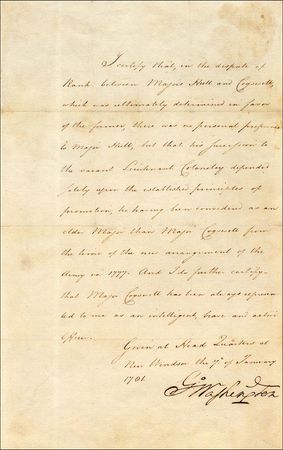 I certify that, in the dispute of
Rank between Majors Hull and Cogswell,
which was ultimately determined in favor
of the former, there was no personal
to Major Hull, but that his succession to
the vacant Lieutenant Colonelcy depended
solely upon the established principles of
promotion, he having been considered as an
older Major than Major Cogswell from
the time of the new arrangement of the
Army in 1777. And I do further certify
that Major Cogswell has been always represen
ted to me as an intelligent, brave and active
officer.
Given at Head Quarters at
New Windsor the of January
1781.
Go Washington